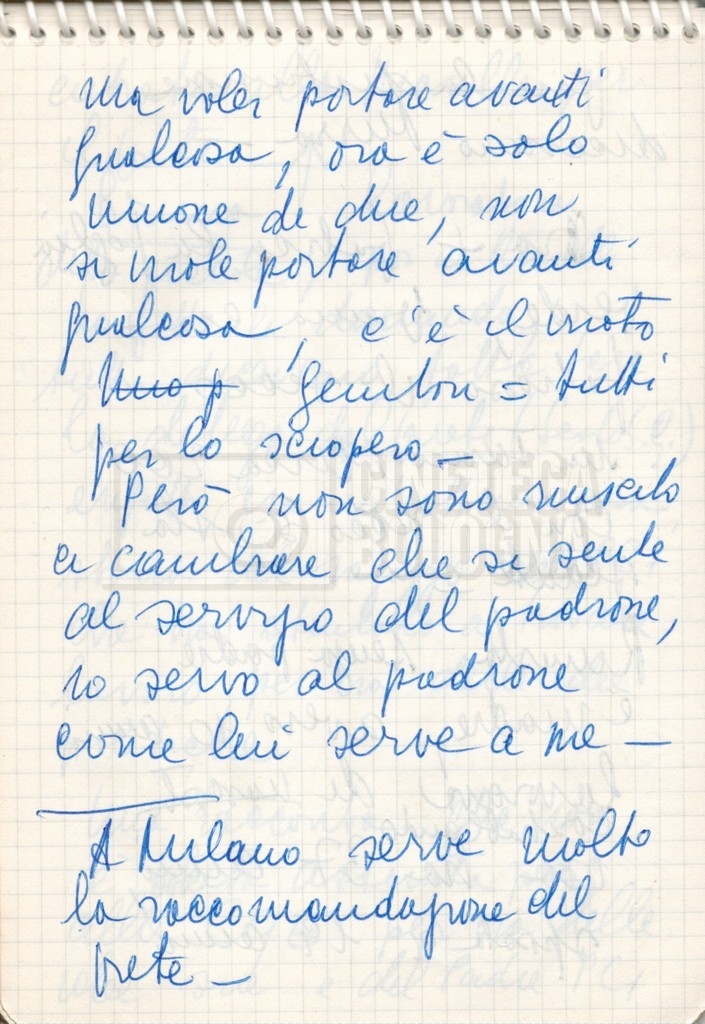 ma voler portare avanti
qualcosa, ora è solo
unione di due, non
si vuole portare avanti
qualcosa, c'è il vuoto
Uno p Genitori = tutti
per lo sciopero —
Però non sono riuscito
a cambiare che si sente
al servizio del padrone,
io servo al padrone
come lui serve a me —
A Milano serve molto
la raccomandazione del
prete —
CINETECA
BOLOGNA